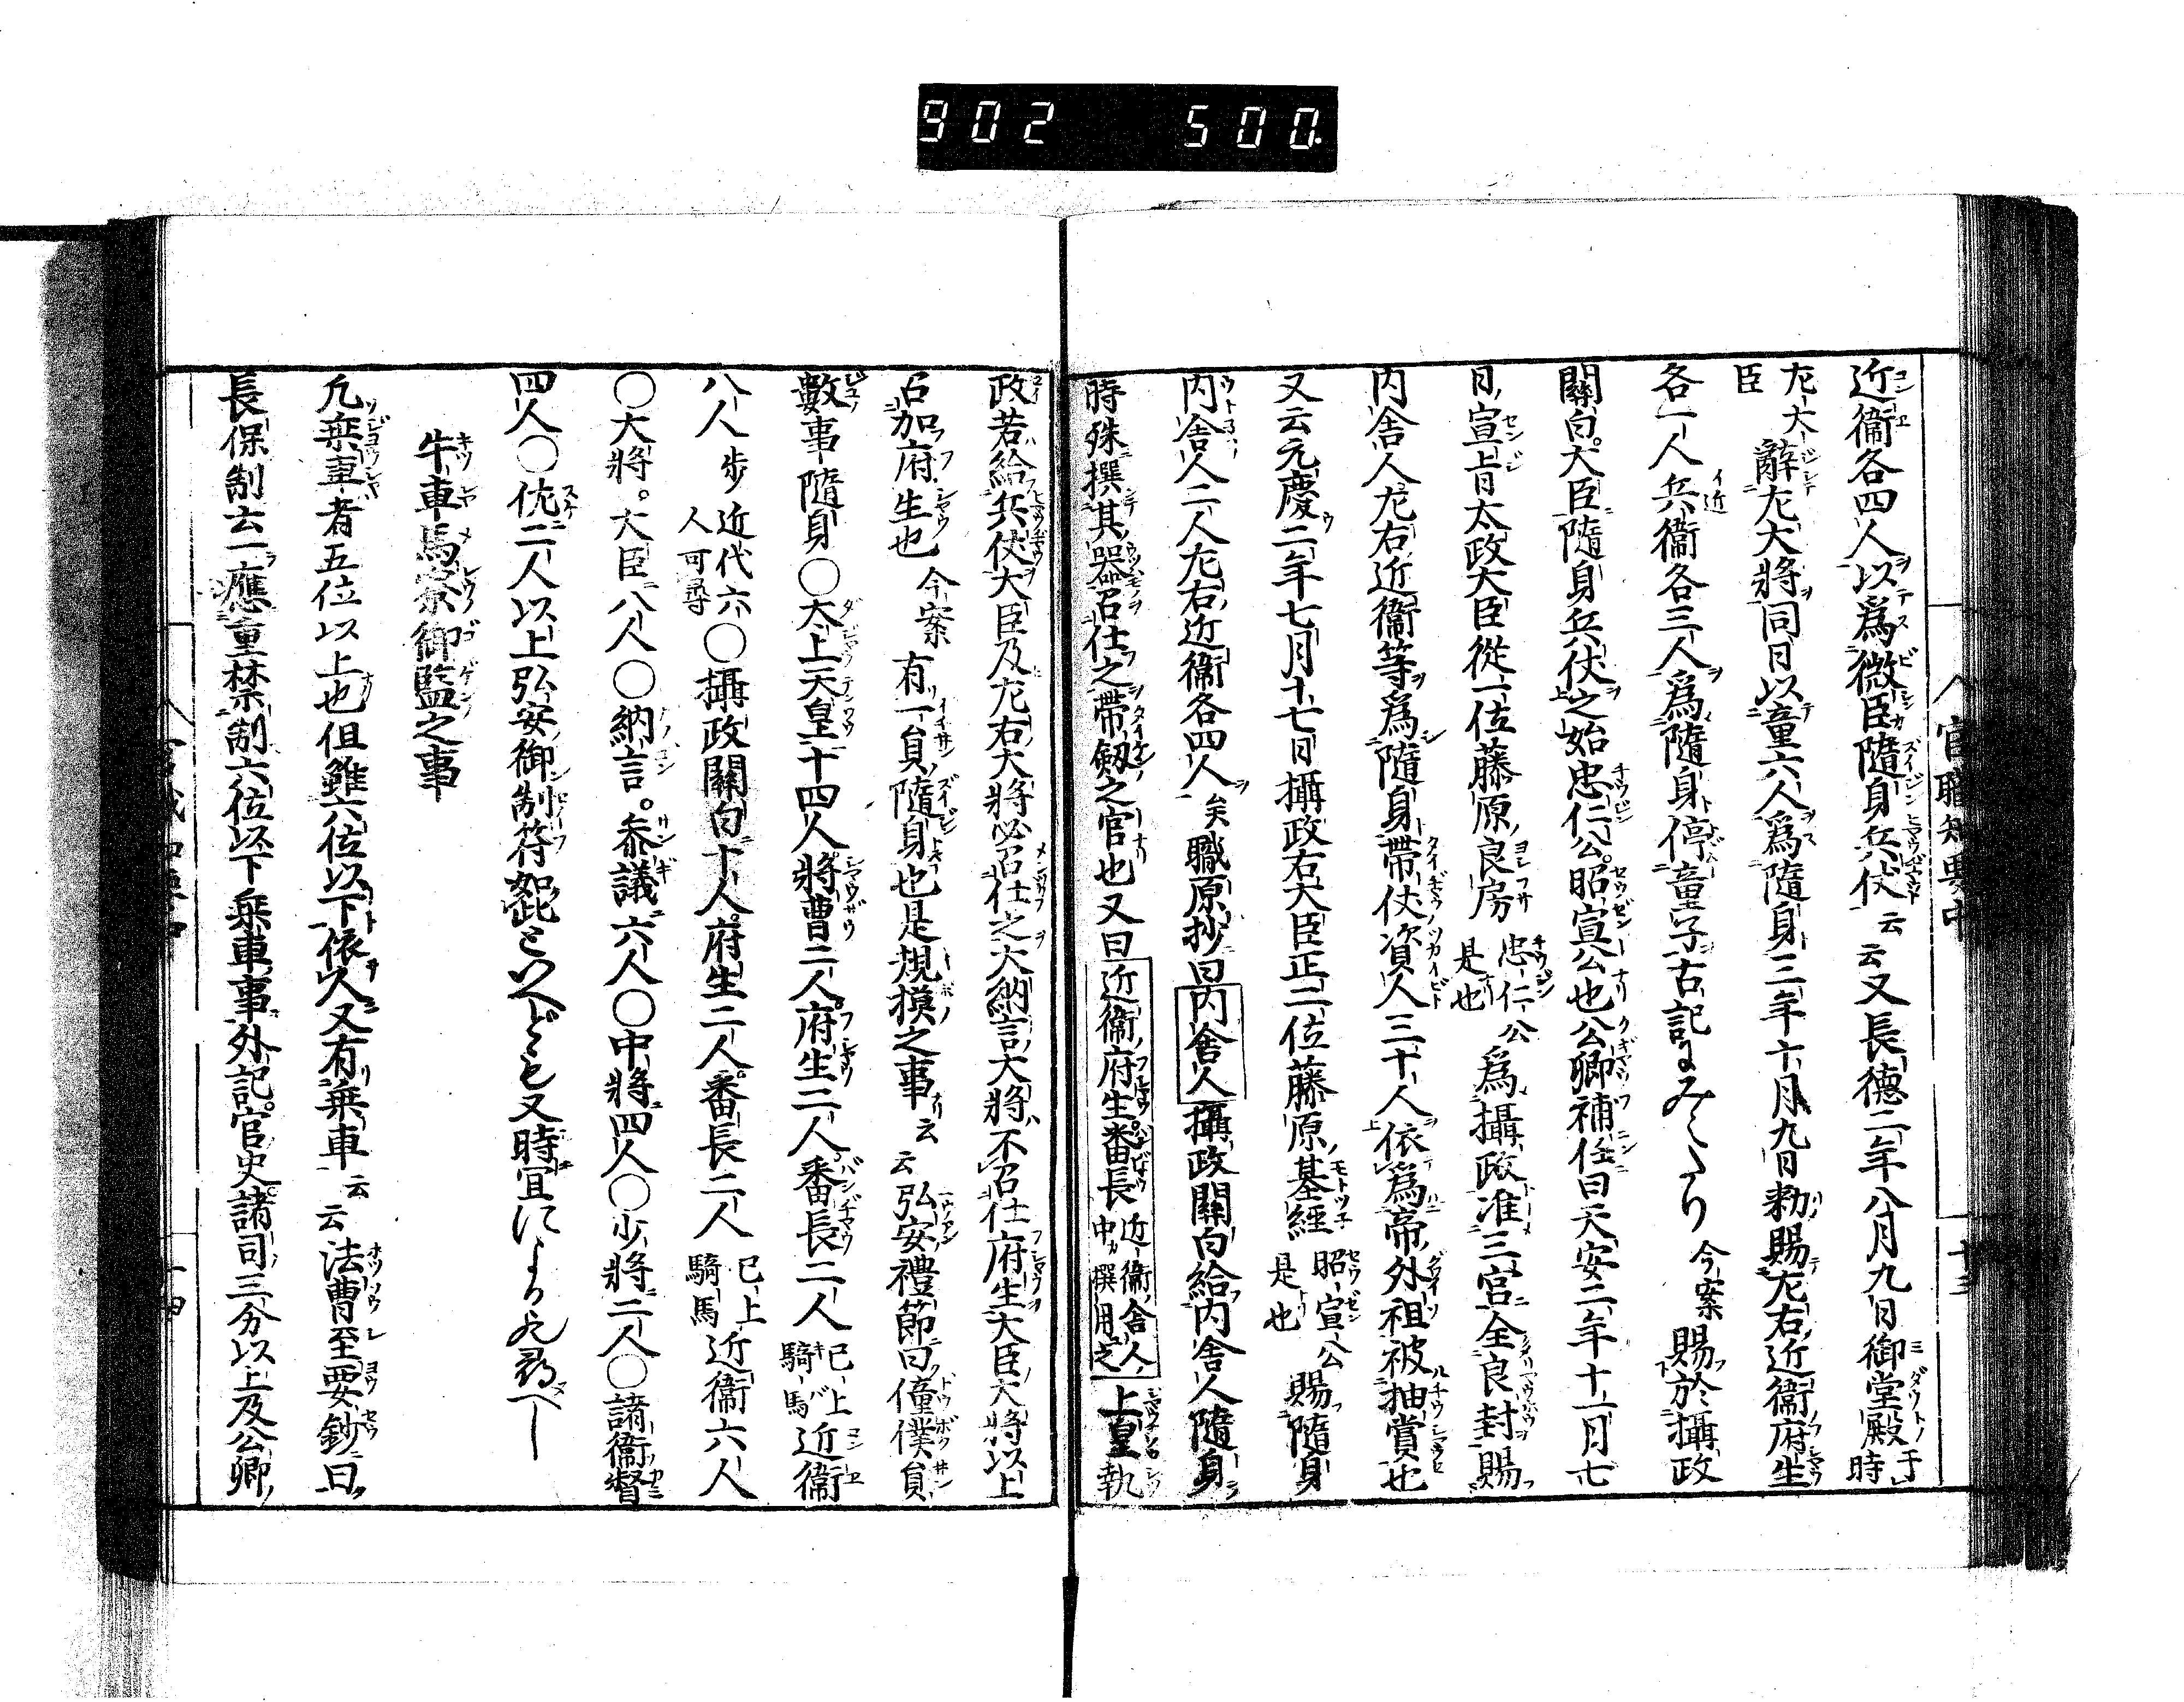 902 500.
官職知要中
近衞各四人以爲微臣隨身兵仗云云又長德二年八月九日御堂殿于時
左大臣辭左大將同日以童六人爲隨身三年十月九日勅賜左右近衞府生
各一人兵衞各三人爲隨身停童子古記にみへたり今案賜於攝政
關白大臣隨身兵仗之始忠仁公昭宣公也公卿補任曰天安二年十一月七
日宣旨太政大臣從一位藤原良房忠仁公是也爲攝政准三宮全良封賜
内舍人左右近衞等爲隨身帶仗資人三十人依爲帝外祖被抽賞也
又云元慶二年七月十七日攝政右大臣正二位藤原基經昭宣公是也賜隨身
内舍人二人左右近衞各四人矣職原抄曰内舍人攝政關白給内舍人隨身
時殊撰其器召仕之帶劔之官也又曰近衞府生番長近衞舍人中撰用之上皇執
政若給兵仗大臣及左右大將必召仕之大納言大將不召仕府生大臣大將以上
召加府生也今案有一員隨身也是規摸之事云云弘安禮節曰僮僕員
數事隨身〇太上天皇十四人將曹二人府生二人番長二人已上騎馬近衞
八人步近代六人可尋〇攝政關白十人府生二人番長二人已上騎馬近衞六人
〇大將大臣八人〇納言參議六人〇中將四人〇少將二人〇諸衞督
四人〇佐二人以上弘安御制符如此といへども又時宜によるか尋べし
牛車馬寮御監之事
凡乘車者五位以上也但雖六位以下依人又有乘車云云法曹至要鈔曰
長保制云一應重禁制六位以下乘車事外記官史諸司三分以上及公卿